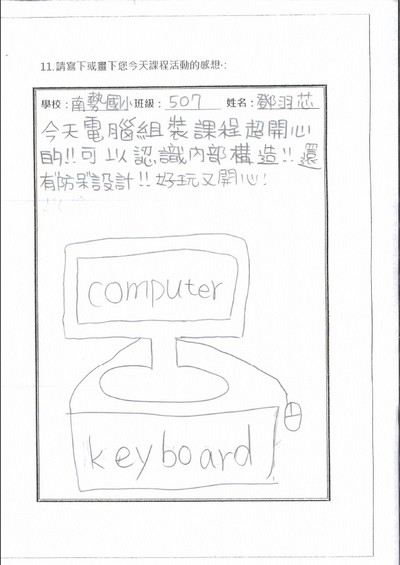 11.請寫下或畫下您今天課程活動的感想:
學校：南勢國小班級：507 姓名：鄧羽芯
今天電腦組裝課程超開心
的!!可以認識內部構造!!還
有"防呆"設計!!好玩又開心!
computer
keyboard